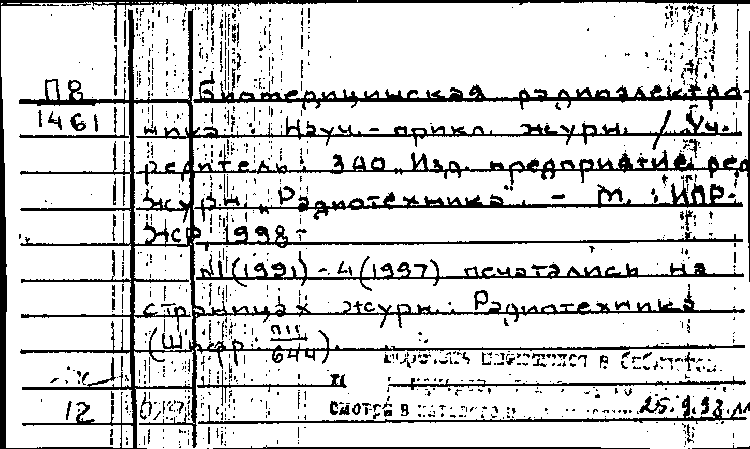 П8
1461
Биомедицинская радиоэлектро-
ника : Науч.-прикл. журн. / Уч-
редитель: ЗАО „Изд. предприятие ред.
журн. „Радиотехника". - М. : ИПР-
ЖР, 1998-
N1(1991)-4(1997) печатались на
страницах журн.: Радиотехника
(Шифр П11/644).
в библиотеке
12
смотри в каталоге
25.9.98